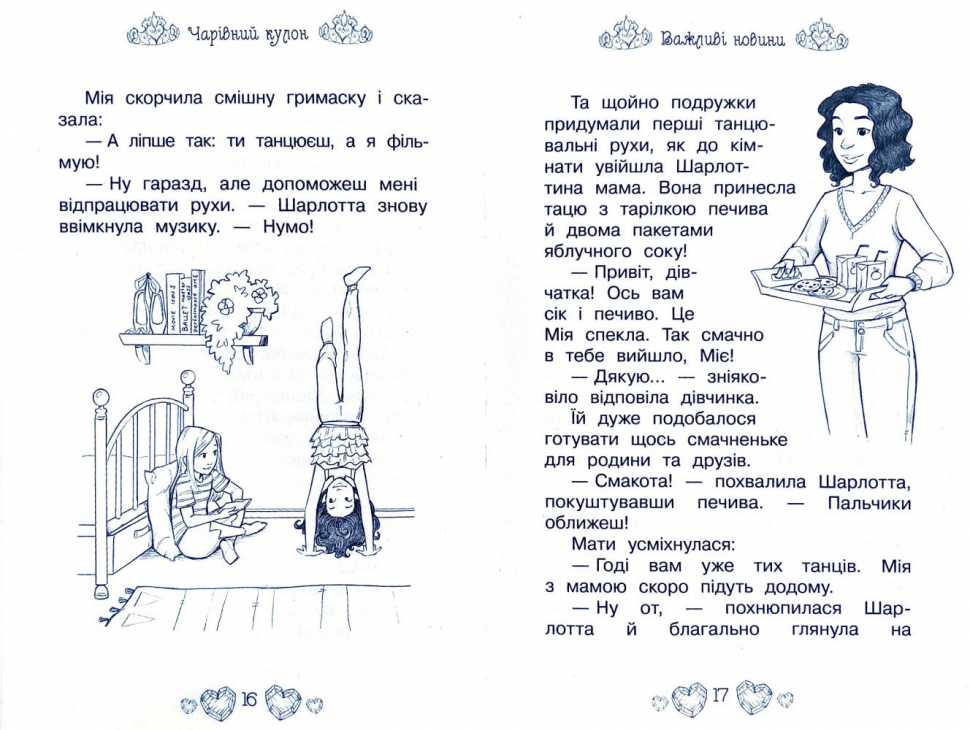 Чарівний кулон
Мія скорчила смішну гримаску і ска-
зала:
— А ліпше так: ти танцюєш, а я філь-
мую!
— Ну гаразд, але допоможеш мені
відпрацювати рухи. — Шарлотта знову
ввімкнула музику. — Нумо!
MOVIE ICONS
BALLET
16
Важливі новини
Та щойно подружки
придумали перші танцю-
вальні рухи, як до кім-
нати увійшла Шарлот-
тина мама. Вона принесла
тацю з тарілкою печива
й двома пакетами
яблучного соку!
— Привіт, дів-
чатка! Ось вам
сік і печиво. Це
Мія спекла. Так смачно
в тебе вийшло, Міє!
— Дякую... — зніяко-
віло відповіла дівчинка.
Їй дуже подобалося
готувати щось смачненьке
для родини та друзів.
— Смакота! — похвалила Шарлотта,
покуштувавши печива. — Пальчики
оближеш!
Мати усміхнулася:
— Годі вам уже тих танців. Мія
з мамою скоро підуть додому.
— Ну от, — похнюпилася Шар-
лотта й благально глянула на
17